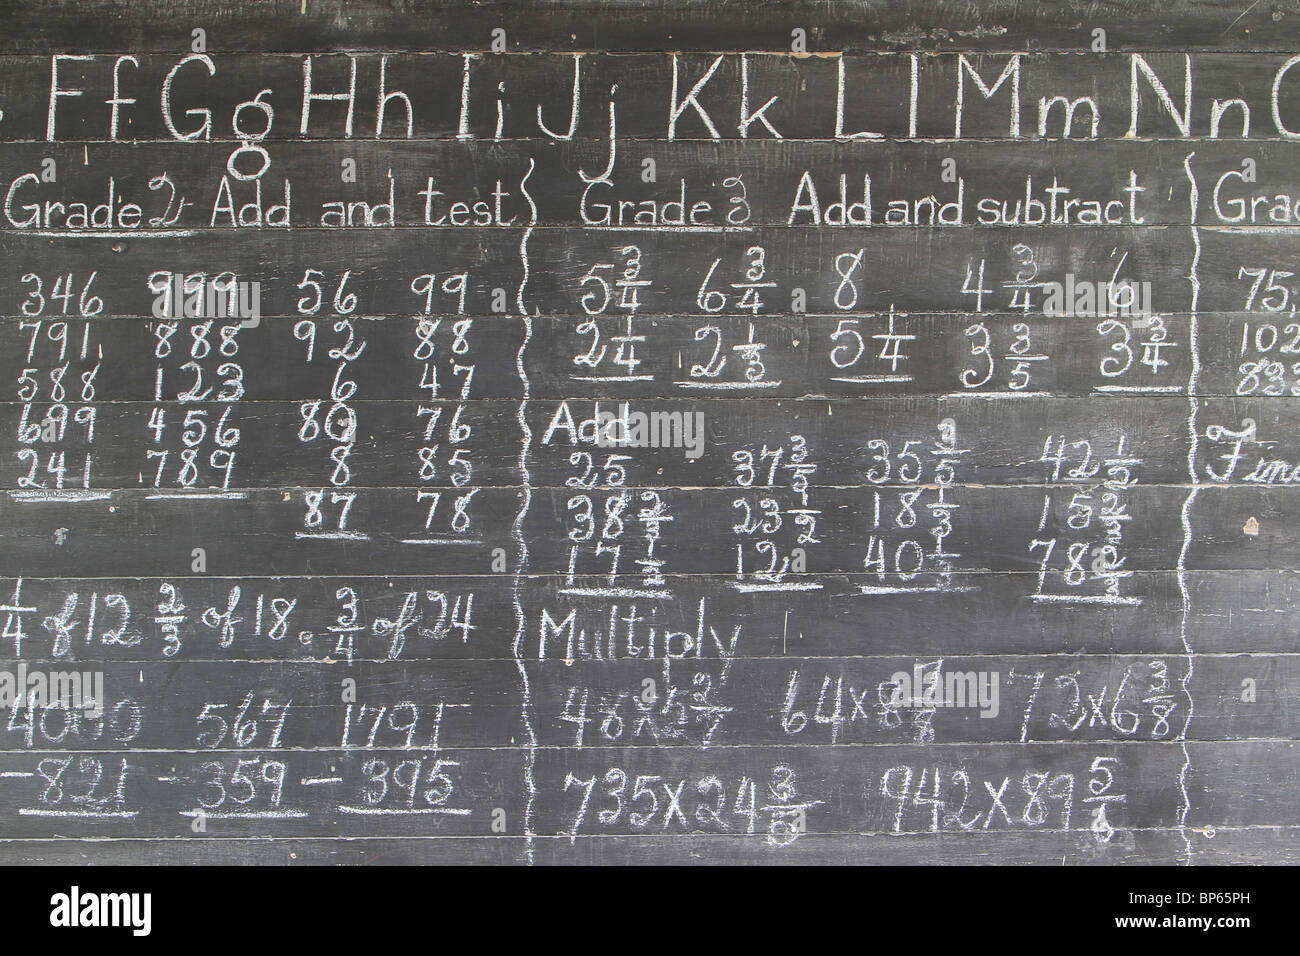 F f G g H h I i J j K k L l M m N n
Grade 2 Add and test
346 999 56 99
791 888 92 88
588 123 6 47
699 456 80 76
241 789 8 85
87 78
1/4 of 12 2/3 of 18. 3/4 of 24
4000 567 1791
-821 -359 -395
Grade 3 Add and subtract
5 3/4 6 3/4 8 4 3/4 6
2 1/4 2 1/3 5 1/4 3 3/5 3 3/4
Add
25 37 3/5 35 2/5 42 1/5
38 2/3 23 1/2 18 1/3 15 2/3
17 1/2 12 40 1/2 78
Multiply
64 × 8 72 × 6 3/8
735 × 24 942 × 89
75
102
833
alamy
Image ID: BP65PH
www.alamy.com